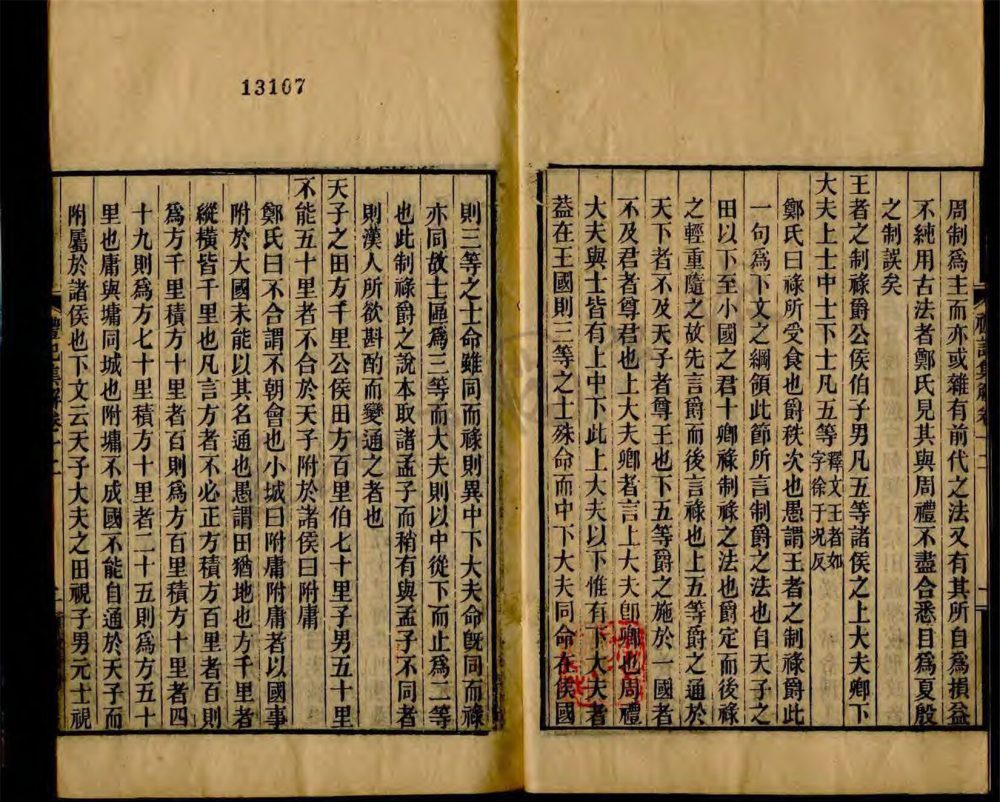 13107
周制爲主而亦或雜有前代之法又有其所自爲損益
不純用古法者鄭氏見其與周禮不盡合悉目爲夏殷
之制誤矣
王者之制祿爵公侯伯子男凡五等諸侯之上大夫卿下
大夫上士中士下士凡五等釋文王者如字徐于况反
鄭氏曰祿所受食也爵秩次也愚謂王者之制祿爵此
一句爲下文之綱領此節所言制爵之法也自天子之
田以下至小國之君十卿祿制祿之法也爵定而後祿
之輕重隨之故先言爵而後言祿也上五等爵之通於
天下者不及天子者尊王也下五等爵之施於一國者
不及君者尊君也上大夫卿者言上大夫卽卿也周禮
大夫與士皆有上中下此上大夫以下惟有下大夫者
葢在王國則三等之士殊命而中下大夫同命在侯國
禮記集解卷十二
則三等之士命雖同而祿則異中下大夫命旣同而祿
亦同故士區爲三等而大夫則以中從下而止爲二等
也此制祿爵之說本取諸孟子而稍有與孟子不同者
則漢人所欲斟酌而變通之者也
天子之田方千里公侯田方百里伯七十里子男五十里
不能五十里者不合於天子附於諸侯曰附庸
鄭氏曰不合謂不朝會也小城曰附庸附庸者以國事
附於大國未能以其名通也愚謂田猶地也方千里者
縱橫皆千里也凡言方者不必正方積方百里者百則
爲方千里積方十里者百則爲方百里積方十里者四
十九則爲方七十里積方十里者二十五則爲方五十
里也庸與墉同城也附墉不成國不能自通於天子而
附屬於諸侯也下文云天子大夫之田視子男元士視